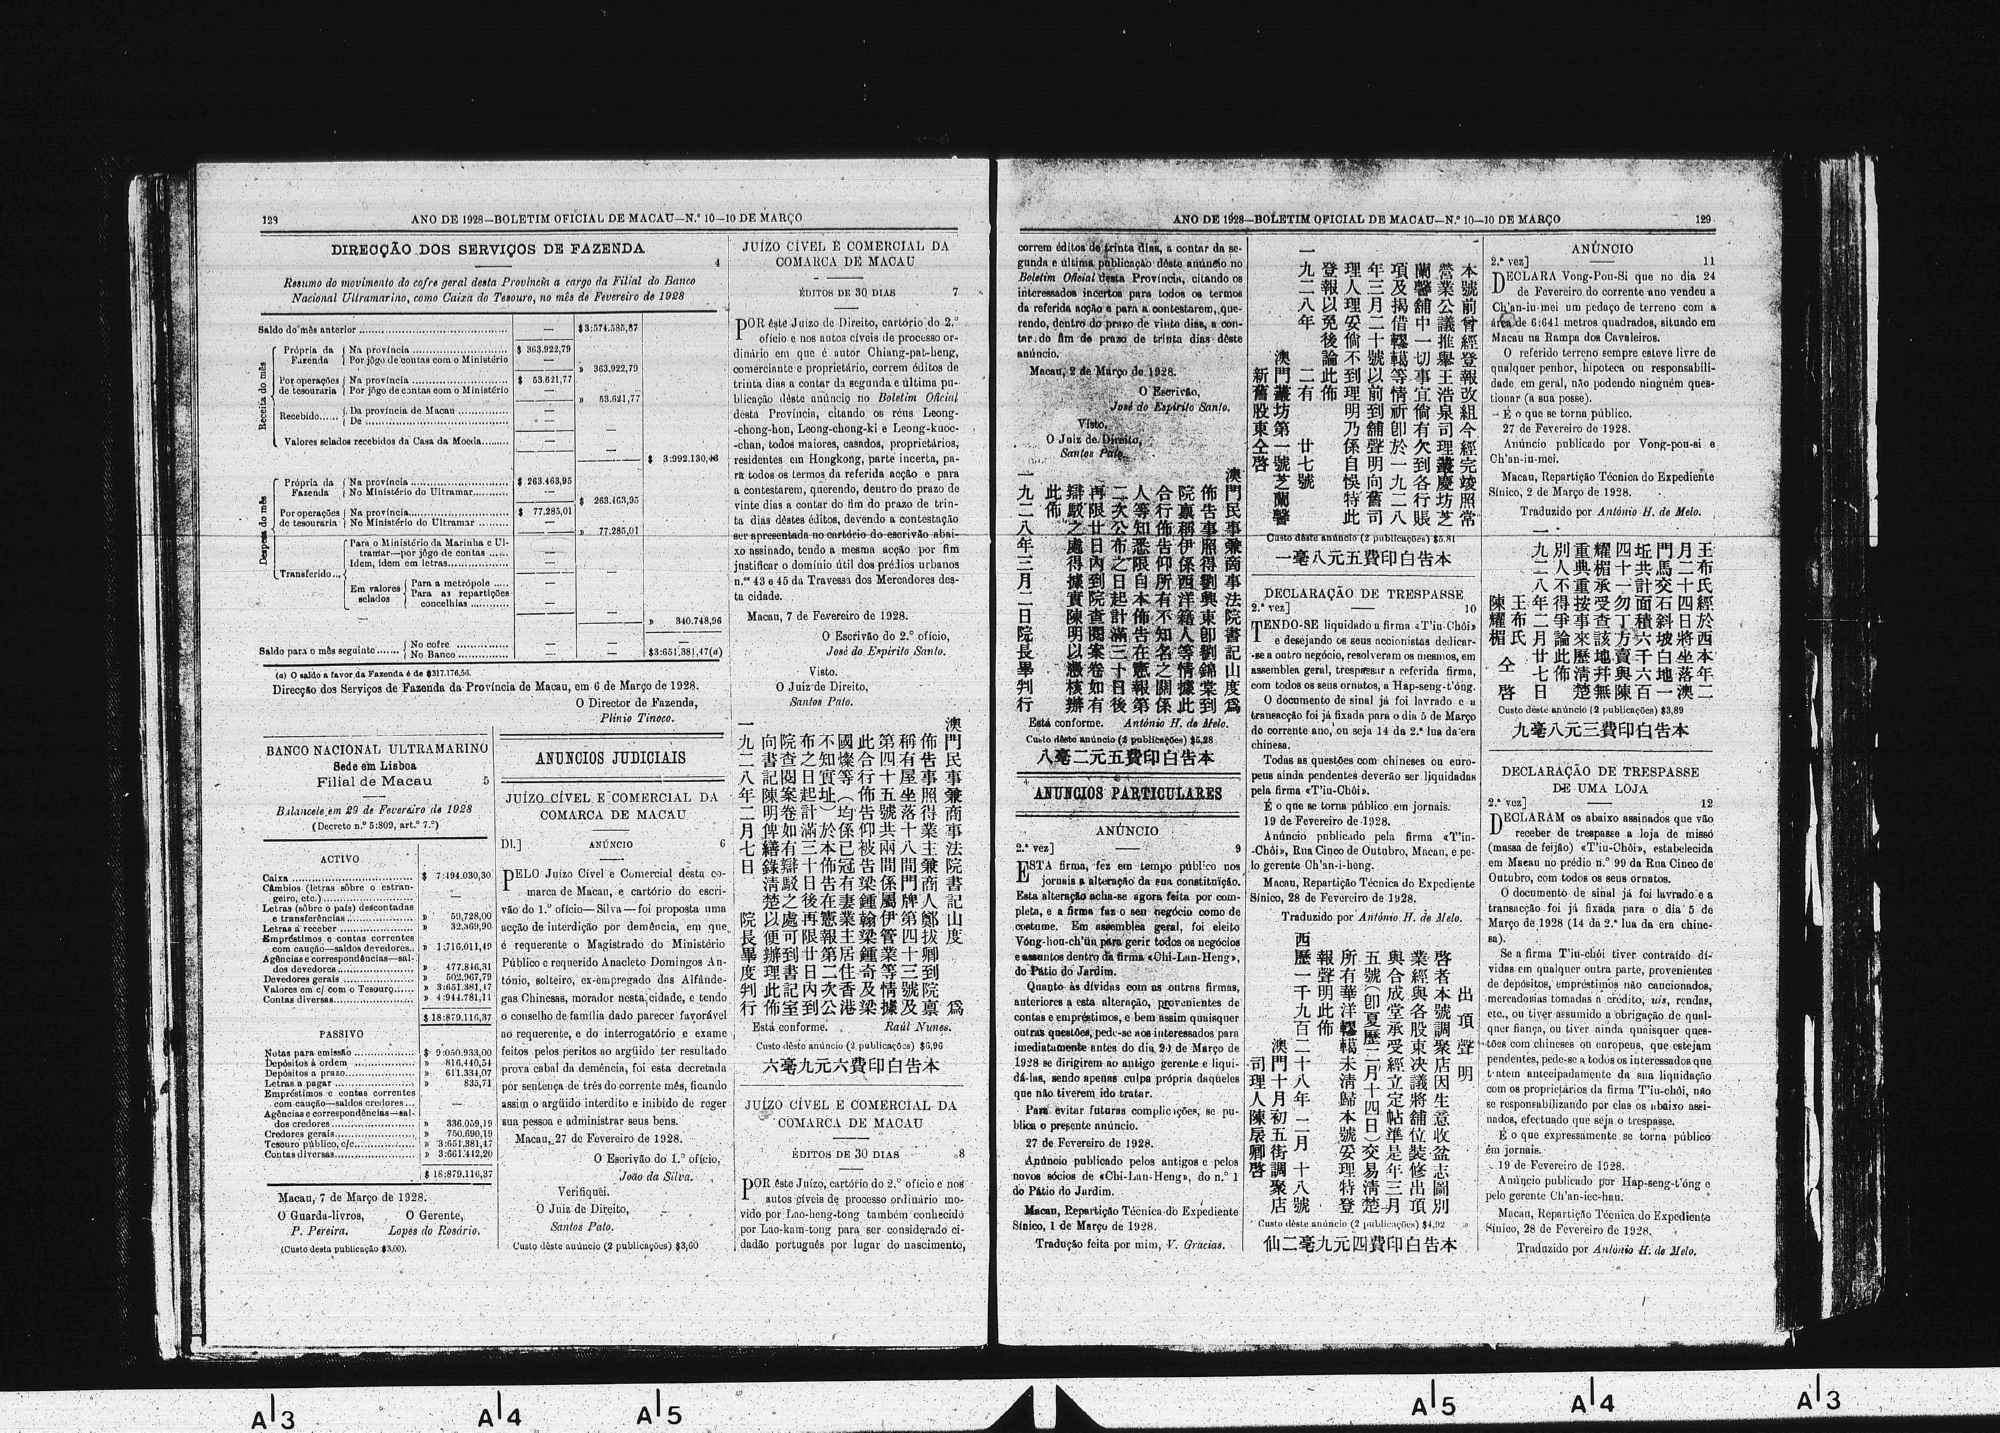 123
ANO DE 1928—BOLETIM OFICIAL DE MACAU—N.º 10—10 DE MARÇO
DIRECÇÃO DOS SERVIÇOS DE FAZENDA
4
Resumo do movimento do cofre geral desta Província a cargo da Filial do Banco
Nacional Ultramarino, como Caixa do Tesouro, no mês de Fevereiro de 1928
Saldo do mês anterior — $3:574.585,87
Receita do mês
Própria da Fazenda
Na província $ 363.922,79
Por jôgo de contas com o Ministério —
» 363.922,79
Por operações de tesouraria
Na província $ 53.621,77
Por jôgo de contas com o Ministério —
» 53.621,77
Recebido
Da província de Macau —
De —
Valores selados recebidos da Casa da Moeda —
$ 3:992.130,43
Despesa do mês
Própria da Fazenda
Na província $ 263.463,95
No Ministério do Ultramar —
$ 263.463,95
Por operações de tesouraria
Na província $ 77.285,01
No Ministério do Ultramar —
» 77.285,01
Transferido
Para o Ministério da Marinha e Ul-
tramar—por jôgo de contas —
Idem, idem em letras —
Em valores selados
Para a metrópole —
Para as repartições
concelhias —
» 340.748,96
Saldo para o mês seguinte
No cofre —
No Banco — $3:651.381,47(a)
(a) O saldo a favor da Fazenda é de $317.176,56.
Direcção dos Serviços de Fazenda da Província de Macau, em 6 de Março de 1928.
O Director de Fazenda,
Plínio Tinoco.
BANCO NACIONAL ULTRAMARINO
Sede em Lisboa
Filial de Macau 5
Balancete em 29 de Fevereiro de 1928
(Decreto n.º 5:809, art.º 7.º)
ACTIVO
Caixa $ 7:494.030,30
Câmbios (letras sôbre o estran-
geiro, etc.) —
Letras (sôbre o país) descontadas
e transferências » 59,728,00
Letras a receber » 32,369,90
Empréstimos e contas correntes
com caução—saldos devedores » 1:716.011,49
Agências e correspondências—sal-
dos devedores » 477.846,31
Devedores gerais » 502.967,79
Valores em c/ com o Tesouro » 3:651.381,47
Contas diversas » 4:944.781,11
$ 18:879.116,37
PASSIVO
Notas para emissão $ 9:050.933,00
Depósitos à ordem » 816.440,54
Depósitos a prazo » 611.334,07
Letras a pagar » 835,71
Empréstimos e contas correntes
com caução—saldos credores —
Agências e correspondências—sal-
dos credores » 336.059,19
Credores gerais » 750.690,19
Tesouro público, c/c » 3:651.381,47
Contas diversas » 3:661.442,20
$ 18:879.116,37
Macau, 7 de Março de 1928.
O Guarda-livros, O Gerente,
P. Pereira. Lopes do Rosário.
(Custo desta publicação $3,00).
ANUNCIOS JUDICIAIS
JUÍZO CÍVEL E COMERCIAL DA
COMARCA DE MACAU
Dl.] ANÚNCIO 6
PELO Juízo Cível e Comercial desta co-
marca de Macau, e cartório do escri-
vão do 1.º ofício—Silva—foi proposta uma
acção de interdição por demência, em que
é requerente o Magistrado do Ministério
Público e requerido Anacleto Domingos An-
tónio, solteiro, ex-empregado das Alfânde-
gas Chinesas, morador nesta cidade, e tendo
o conselho de família dado parecer favorável
ao requerente, e do interrogatório e exame
feitos pelos peritos ao argüido ter resultado
prova cabal da demência, foi esta decretada
por sentença de três do corrente mês, ficando
assim o argüido interdito e inibido de reger
sua pessoa e administrar seus bens.
Macau, 27 de Fevereiro de 1928.
O Escrivão do 1.º ofício,
João da Silva.
Verifiquei.
O Juiz de Direito,
Santos Pato.
Custo dêste anúncio (2 publicações) $3,60
JUÍZO CÍVEL E COMERCIAL DA
COMARCA DE MACAU
ÉDITOS DE 30 DIAS 7
POR êste Juízo de Direito, cartório do 2.º
ofício e nos autos cíveis de processo or-
dinário em que é autor Chiang-pat-heng,
comerciante e proprietário, correm éditos de
trinta dias a contar da segunda e última pu-
blicação dêste anúncio no Boletim Oficial
desta Província, citando os réus Leong-
-chong-hon, Leong-chong-ki e Leong-kuoc-
-chan, todos maiores, casados, proprietários,
residentes em Hongkong, parte incerta, pa-
ra todos os termos da referida acção e para
a contestarem, querendo, dentro do prazo de
vinte dias a contar do fim do prazo de trin-
ta dias dêstes éditos, devendo a contestação
ser apresentada no cartório do escrivão abai-
xo assinado, tendo a mesma acção por fim
justificar o domínio útil dos prédios urbanos
n.ºs 43 e 45 da Travessa dos Mercadores des-
ta cidade.
Macau, 7 de Fevereiro de 1928.
O Escrivão do 2.º ofício,
José do Espírito Santo.
Visto.
O Juiz de Direito,
Santos Pato.
澳門民事兼商事法院書記山度 爲
佈告事照得業主兼商人鄭拔卿到院禀
稱有屋坐落十八間門牌第四十三號及
第四十五號共兩間係屬伊管業等情據
此合行佈告仰被告梁鍾翰梁鍾奇及梁
國燦等(均係已冠有妻業主居住香港
不知實址)於本佈告在憲報第二次公
布之日起計滿三十日後再限廿日內到
院查閱案卷如有辯駁之處可到書記室
向書記陳明俾繕錄淸楚以便辦理此佈
一九二八年二月七日 院長畢度判行
Está conforme. Raúl Nunes.
Custo dêste anúncio (2 publicações) $6,96
六毫九元六費印白告本
JUÍZO CÍVEL E COMERCIAL DA
COMARCA DE MACAU
ÉDITOS DE 30 DIAS 8
POR êste Juízo, cartório do 2.º ofício e nos
autos cíveis de processo ordinário mo-
vido por Lao-heng-tong também conhecido
por Lao-kam-tong para ser considerado ci-
dadão português por lugar do nascimento,
ANO DE 1928—BOLETIM OFICIAL DE MACAU—N.º 10—10 DE MARÇO
129
correm éditos de trinta dias, a contar da se-
gunda e última publicação dêste anúncio no
Boletim Oficial desta Província, citando os
interessados incertos para todos os termos
da referida acção e para a contestarem, que-
rendo, dentro do prazo de vinte dias, a con-
tar do fim de prazo de trinta dias dêste
anúncio.
Macau, 2 de Março de 1928.
O Escrivão,
José do Espírito Santo.
Visto.
O Juiz de Direito,
Santos Pato.
澳門民事兼商事法院書記山度爲
佈告事照得劉興東卽劉錦棠到
院禀稱伊係西洋籍人等情據此
合行佈告仰所有不知名之關係
人等知悉限自本佈告在憲報第
二次公布之日起計滿三十日後
再限廿日內到院查閱案卷如有
辯駁之處得據實陳明以憑核辦
此佈
一九二八年三月二日院長畢判行
Está conforme. António H. de Melo.
Custo dêste anúncio (2 publicações) $5,28
八毫二元五費印白告本
ANUNCIOS PARTICULARES
ANÚNCIO
2.ª vez] 9
ESTA firma, fez em tempo público nos
jornais a alteração da sua constituïção.
Esta alteração acha-se agora feita por com-
pleta, e a firma faz o seu negócio como de
costume. Em assemblea geral, foi eleito
Vóng-hou-ch'ün para gerir todos os negócios
e assuntos dentro da firma «Chi-Lan-Heng»,
do Pátio do Jardim.
Quanto às dívidas com as outras firmas,
anteriores a esta alteração, provenientes de
contas e empréstimos, e bem assim quaisquer
outras questões, pede-se aos interessados para
imediatamente antes do dia 20 de Março de
1928 se dirigirem ao antigo gerente e liqui-
dá-las, sendo apenas culpa própria daqueles
que não tiverem ido tratar.
Para evitar futuras complicações, se pu-
blica o presente anúncio.
27 de Fevereiro de 1928.
Anúncio publicado pelos antigos e pelos
novos sócios de «Chi-Lan-Heng», do n.º 1
do Pátio do Jardim.
Macau, Repartição Técnica do Expediente
Sínico, 1 de Março de 1928.
Tradução feita por mim, V. Gracias.
本號前曾經登報改組今經完竣照常
營業公議推舉王浩泉司理叢慶坊芝
蘭馨舖中一切事宜倘有欠到各行賬
項及揭借轇轕等情祈卽於一九二八
年三月二十號以前到舖聲明向舊司
理人理妥倘不到理明乃係自悞特此
登報以免後論此佈
一九二八年 二有 廿七號
澳門叢坊第一號芝蘭馨
新舊股東仝啓
Custo dêste anúncio (2 publicações) $5.81
一毫八元五費印白告本
DECLARAÇÃO DE TRESPASSE
2.ª vez] 10
TENDO-SE liquidado a firma «T'iu-Chôi»
e desejando os seus accionistas dedicar-
-se a outro negócio, resolveram os mesmos, em
assemblea geral, trespassar a referida firma,
com todos os seus ornatos, a Hap-seng-t'óng.
O documento de sinal já foi lavrado e a
transacção foi já fixada para o dia 5 de Março
do corrente ano, ou seja 14 da 2.ª lua da era
chinesa.
Todas as questões com chineses ou euro-
peus ainda pendentes deverão ser liquidadas
pela firma «T'iu-Chôi».
É o que se torna público em jornais.
19 de Fevereiro de 1928.
Anúncio publicado pela firma «T'iu-
-Chôi», Rua Cinco de Outubro, Macau, e pe-
lo gerente Ch'an-i-heng.
Macau, Repartição Técnica do Expediente
Sínico, 28 de Fevereiro de 1928.
Traduzido por António H. de Melo.
出頂聲明
啓者本號調聚店因生意收盆志圖別
業經與各股東决議將舖位裝修出頂
與合成堂承受經立定帖準是年三月
五號(卽夏歷二月十四日)交易淸楚
所有華洋轇轕未淸歸本號妥理特登
報聲明此佈
西歷一千九百二十八年二月十八號
澳門十月初五街調聚店
司理人陳扆卿啓
Custo dêste anúncio (2 publicações) $4,92
仙二毫九元四費印白告本
ANÚNCIO
2.ª vez] 11
DECLARA Vong-Pou-Si que no dia 24
de Fevereiro do corrente ano vendeu a
Ch'an-iu-mei um pedaço de terreno com a
área de 6:641 metros quadrados, situado em
Macau na Rampa dos Cavaleiros.
O referido terreno sempre esteve livre de
qualquer penhor, hipoteca ou responsabili-
dade em geral, não podendo ninguém ques-
tionar (a sua posse).
É o que se torna público.
27 de Fevereiro de 1928.
Anúncio publicado por Vong-pou-si e
Ch'an-iu-mei.
Macau, Repartição Técnica do Expediente
Sínico, 2 de Março de 1928.
Traduzido por António H. de Melo.
王布氏經於西本年二
月二十四日將坐落澳
門馬交石斜坡白地一
坵共計面積六千六百
四十一勿丁方賣與陳
耀楣承受查該地幷無
重典重按事來歷淸楚
別人不得爭論此佈
一九二八年二月廿七日
王布氏
陳耀楣 仝啓
Custo dêste anúncio (2 publicações) $3,89
九毫八元三費印白告本
DECLARAÇÃO DE TRESPASSE
DE UMA LOJA
2.ª vez] 12
DECLARAM os abaixo assinados que vão
receber de trespasse a loja de missó
(massa de feijão) «T'iu-Chôi», estabelecida
em Macau no prédio n.º 99 da Rua Cinco de
Outubro, com todos os seus ornatos.
O documento de sinal já foi lavrado e a
transacção foi já fixada para o dia 5 de
Março de 1928 (14 da 2.ª lua da era chine-
sa).
Se a firma T'iu-chói tiver contraído dí-
vidas em qualquer outra parte, provenientes
de depósitos, empréstimos não caucionados,
mercadorias tomadas a crédito, uis, rendas,
etc., ou tiver assumido a obrigação de qual-
quer fiança, ou tiver ainda quaisquer ques-
tões com chineses ou europeus, que estejam
pendentes, pede-se a todos os interessados que
tratem antecipadamente da sua liquidação
com os proprietários da firma T'iu-chôi, não
se responsabilizando por elas os abaixo assi-
nados, efectuado que seja o trespasse.
É o que expressamente se torna público
em jornais.
19 de Fevereiro de 1928.
Anúncio publicado por Hap-seng-t'óng e
pelo gerente Ch'an-iec-hau.
Macau, Repartição Técnica do Expediente
Sínico, 28 de Fevereiro de 1928.
Traduzido por António H. de Melo.
A3 A4 A5 A5 A4 A3